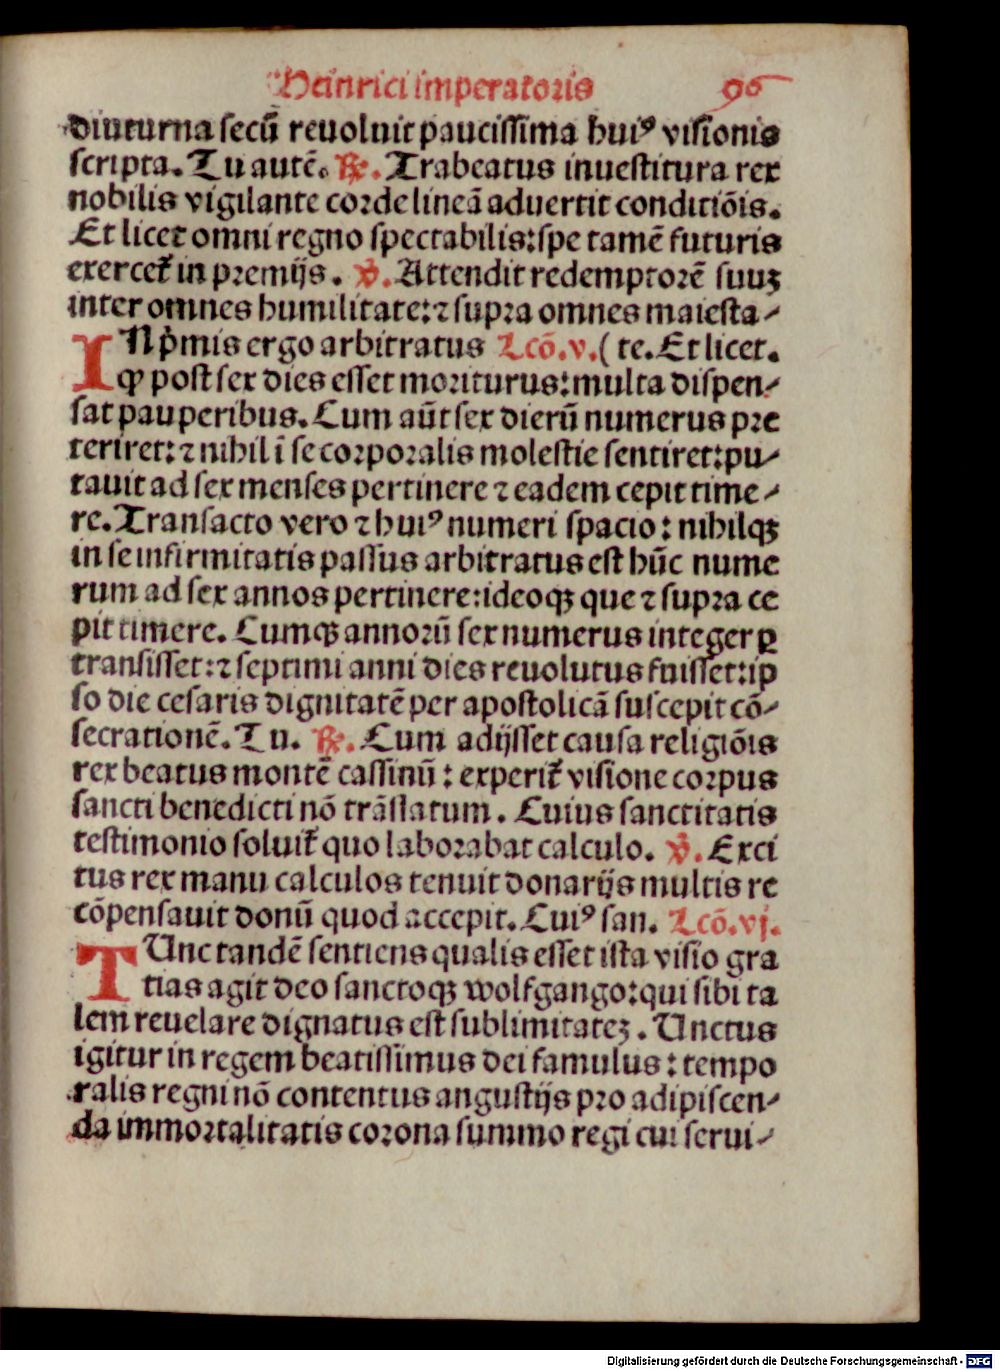 Heinrici imperatoris 96
diuturna secū reuoluit paucissima huiꝰ visionis
scripta. Tu autē. ℟. Trabeatus inuestitura rex
nobilis vigilante corde lineā aduertit conditiōis.
Et licet omni regno spectabilis: spe tamē futuris
exercet᷑ in premijs. ℣. Attendit redemptorē suuꝫ
inter omnes humilitate: ⁊ supra omnes maiesta⸗
INp̄mis ergo arbitratus Lcō.v.( te. Et licet.
ꝙ post sex dies esset moriturus: multa dispen⸗
sat pauperibus. Cum aūt sex dierū numerus pre
teriret: ⁊ nihil ī se corporalis molestie sentiret: pu⸗
tauit ad sex menses pertinere ⁊ eadem cepit time⸗
re. Transacto vero ⁊ huiꝰ numeri spacio: nihilqꝫ
in se infirmitatis passus arbitratus est hūc nume
rum ad sex annos pertinere: ideoqꝫ que ⁊ supra ce
pit timere. Cumqꝫ annorū sex numerus integer ꝑ
transisset: ⁊ septimi anni dies reuolutus fuisset: ip
so die cesaris dignitatē per apostolicā suscepit cō⸗
secrationē. Tu. ℟. Cum adijsset causa religiōis
rex beatus montē cassinū: experit᷑ visione corpus
sancti benedicti nō trāslatum. Cuius sanctitatis
testimonio soluit᷑ quo laborabat calculo. ℣. Exci
tus rex manu calculos tenuit donarijs multis re
cōpensauit donū quod accepit. Cuiꝰ san. Lcō.vj.
TUnc tandē sentiens qualis esset ista visio gra
tias agit deo sanctoqꝫ wolfgango: qui sibi ta
lem reuelare dignatus est sublimitateꝫ. Unctus
igitur in regem beatissimus dei famulus: tempo
ralis regni nō contentus angustijs pro adipiscen⸗
da immortalitatis corona summo regi cui serui⸗
Digitalisierung gefördert durch die Deutsche Forschungsgemeinschaft - DFG